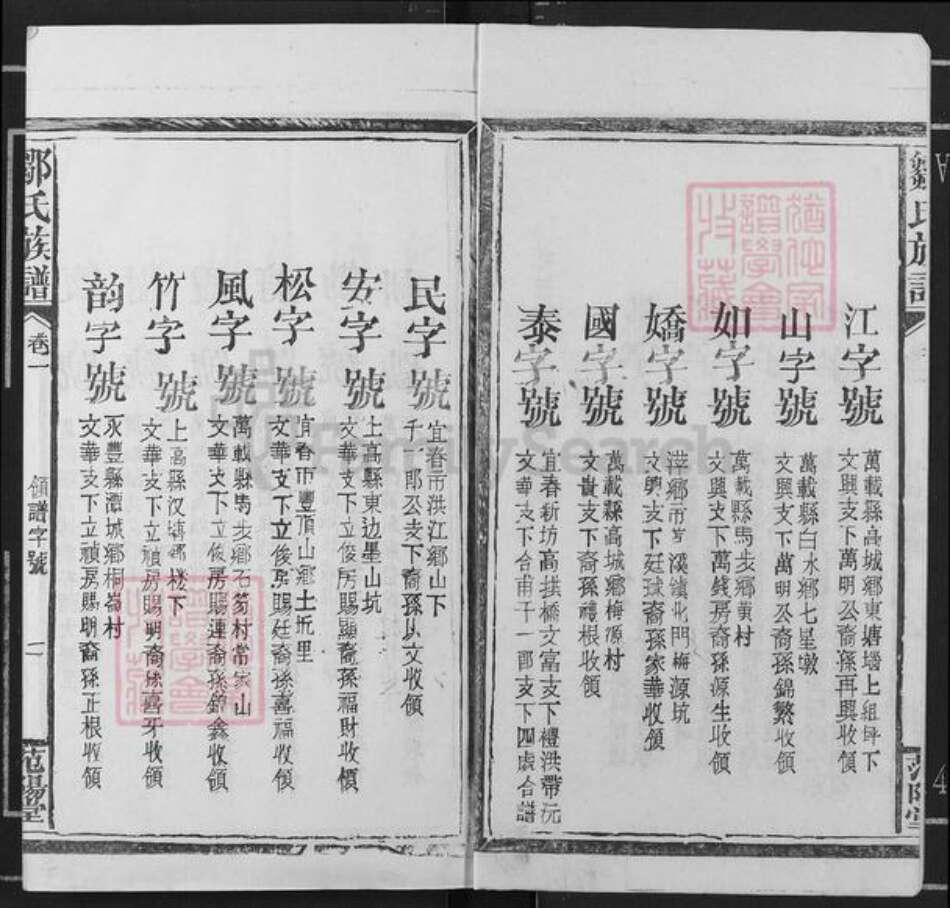 江字號
萬載縣高城鄉東塘墈上組坪下
文興支下萬明公裔孫再興收領
山字號
萬載縣白水鄉七星墩
文興支下萬明公裔孫錦繁收領
如字號
萬載縣馬步鄉黄村
文興支下萬錢房裔孫源生收領
嬌字號
萍鄉市芦溪鎮北門梅源坑
文興支下廷球裔孫家華收領
國字號
萬載縣高城鄉梅源村
文貴支下裔孫禮根收領
泰字號
宜春新坊高拱橋文富支下禮洪帶沅
文華支下合甫千一郎支下四處合譜
民字號
宜春市洪江鄉山下
千一郎公支下裔孫从文收領
安字號
上高縣東边墨山坑
文華支下立俊房賜顯裔孫福財收領
松字號
宜春市豐頂山鄉土坵里
文華支下立俊房賜廷裔孫喜福收領
風字號
萬載縣馬步鄉石笏村常家山
文華支下立俊房賜連裔孫錦鑫收領
竹字號
上高縣汉塘鄉楼下
文華支下立禎房賜明裔孫喜牙收領
韵字號
永豐縣潭城鄉桐崙村
文華支下立禎房賜明裔孫正根收領
鄒氏族譜
卷一
領譜字號
二
范陽堂
FamilySearch